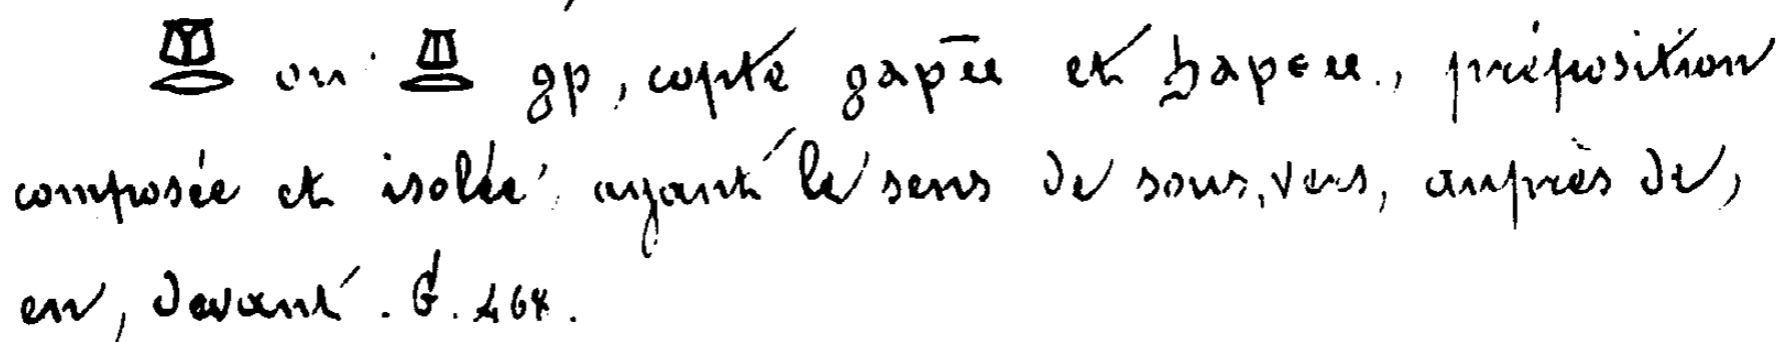 𓌨𓂋 ou 𓌨𓂋 ϩⲣ, copte ϩⲁⲣⲙ̄ et ϧⲁⲣⲉⲙ., préposition
composée et isolée, ayant le sens de sous, vers, auprès de,
en, devant. G. 468.